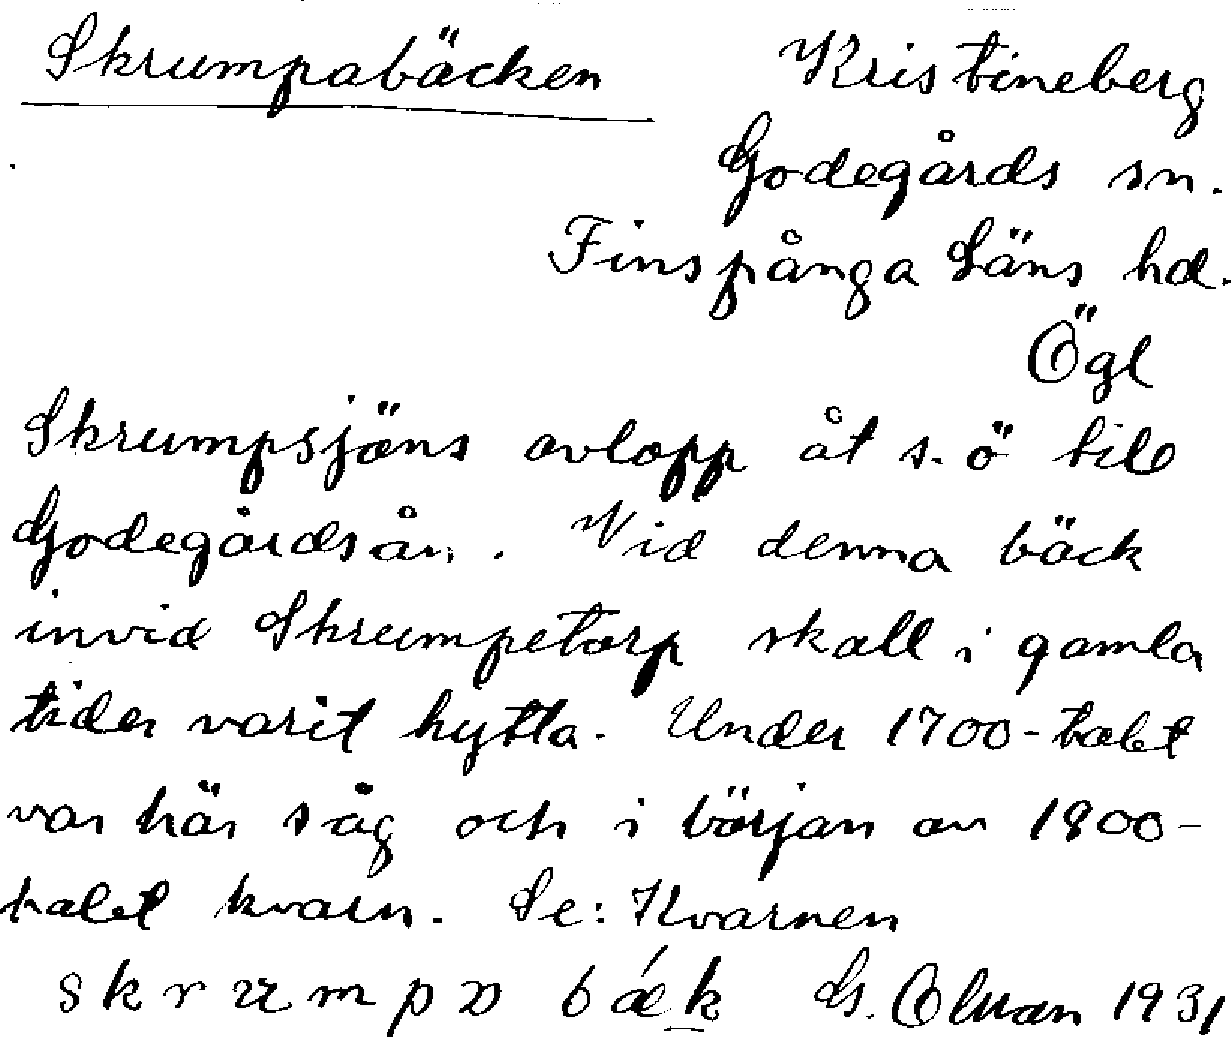 Skrumpabäcken Kristineberg
Godegårds sn.
Finspånga Läns hd.
Ögl
Skrumpsjöns avlopp åt s.ö till
Godegårdsån. Vid denna bäck
invid Skrumpetorp skall i gamla
tider varit hytta. Under 1700-talet
var här såg och i början av 1800-
talet kvarn. Se: Kvarnen
skrumpa bäk G. 1931